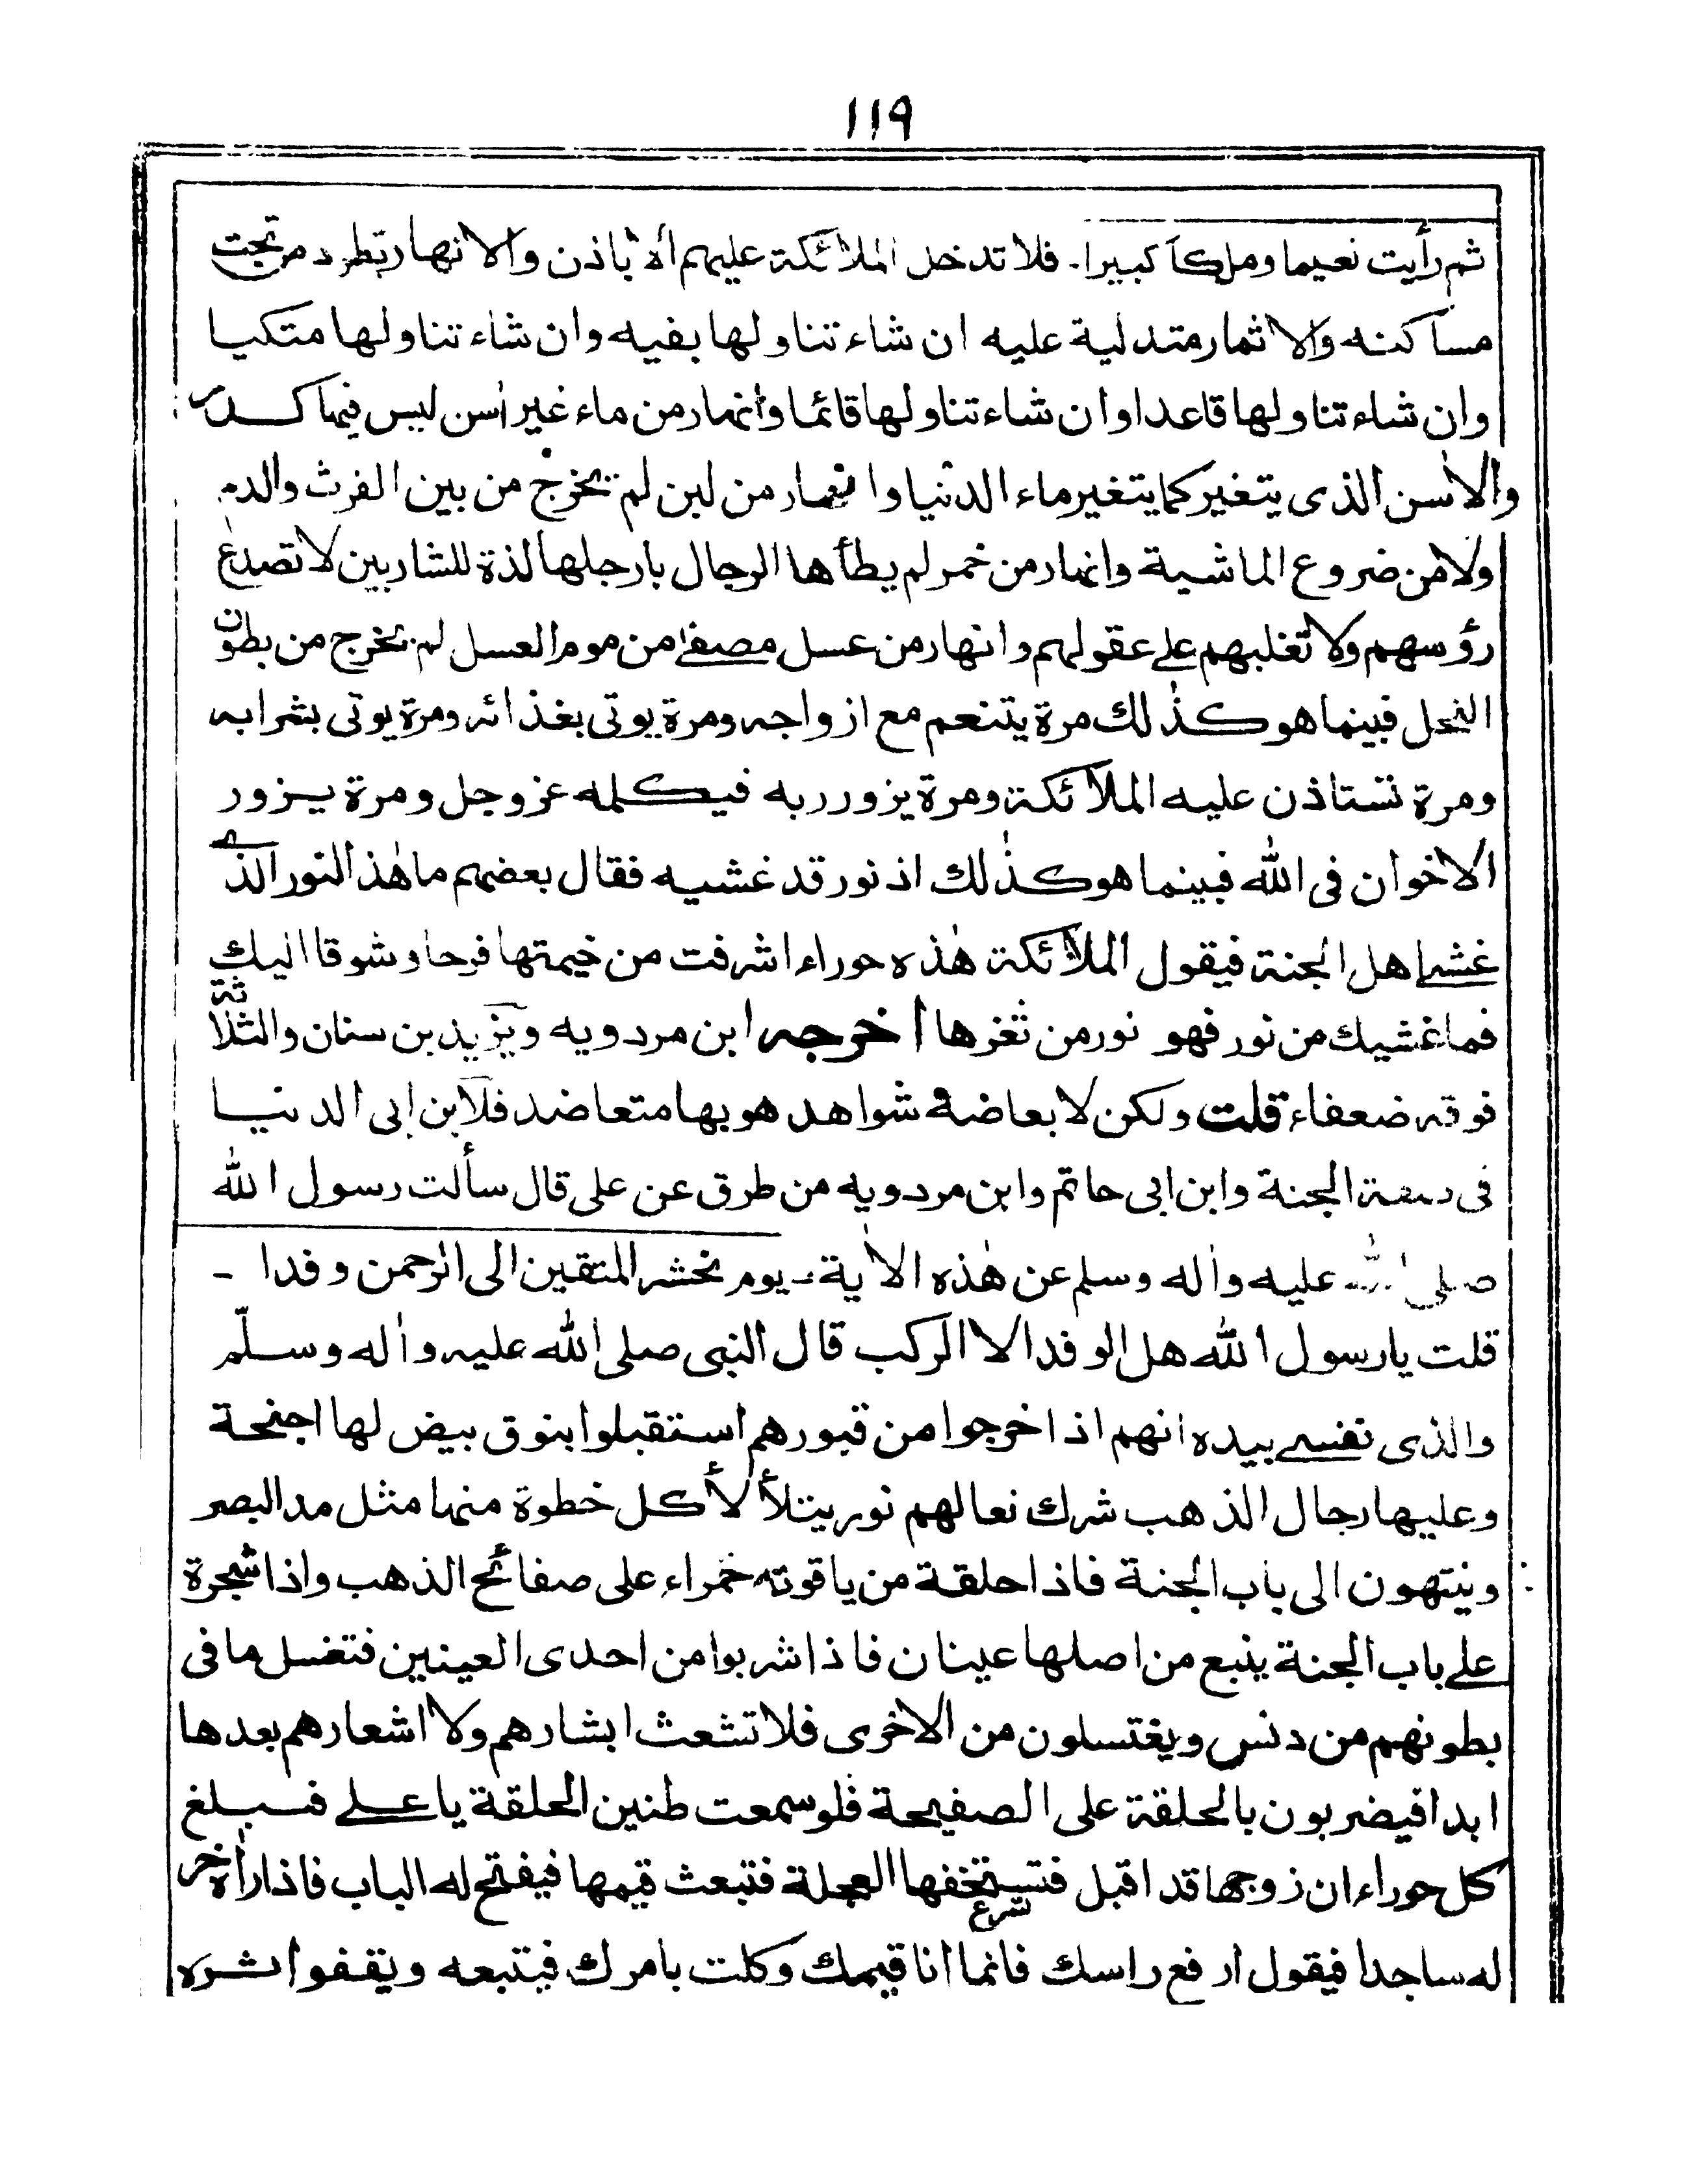 ١١٩
ثم رأيت نعيما وملكا كبيرا۔ فلا تدخل الملائكة عليهم الا باذن والانهار تطرد من تحت
مساكنه والاثمار متدلية عليه ان شاء تناولها بفيه وان شاء تناولها متكيا
وان شاء تناولها قاعدا وان شاء تناولها قائما وانهار من ماء غير اٰسن ليس فيها كدر
والاٰسن الذى يتغير كما يتغير ماء الدنيا وانهار من لبن لم يخرج من بين الفرث والدم
ولا من ضروع الماشية وانهار من خمر لم يطأها الرجال بارجلها لذة للشاربين لا تصدع
رؤسهم ولا تغلبهم على عقولهم وانهار من عسل مصفےٰ من موم العسل لم تخرج من بطون
النحل فبينما هو كذٰلك مرة يتنعم مع ازواجه ومرة يوتى بغذائه ومرة يوتى بشرابه
ومرة تستاذن عليه الملائكة ومرة يزور ربه فيكلمه عز وجل ومرة يزور
الاخوان فى الله فبينما هو كذٰلك اذ نور قد غشيه فقال بعضهم ما هٰذ النور الذے
غشے اهل الجنة فيقول الملائكة هٰذه حوراء اشرفت من خيمتها فرحا وشوقا اليك
فما غشيك من نور فهو نور من ثغرها اخرجه ابن مردويه ويزيد بن سنان والثلاثة
فوقه ضعفاء قلت ولكن لابعاضه شواهد هو بها متعاضد فلابن ابى الدنيا
فى صفة الجنة وابن ابى حاتم وابن مردويه من طرق عن على قال سألت رسول الله
صلى الله عليه واٰله وسلم عن هٰذه الاٰية۔ يوم نحشر المتقين الى الرحمن وفدا ۔
قلت يا رسول الله هل الوفد الا الركب قال النبى صلى الله عليه واٰله وسلّم
والذى نفسے بيده انهم اذا خرجوا من قبورهم استقبلوا بنوق بيض لها اجنحة
وعليها رحال الذهب شرك نعالهم نور يتلألأ كل خطوة منها مثل مد البصر
وينتهون الى باب الجنة فاذا حلقة من ياقوته حمراء على صفائح الذهب واذا شجرة
علے باب الجنة ينبع من اصلها عينان فاذا شربوا من احدى العينين فتغسل ما فى
بطونهم من دنس ويغتسلون من الاخرى فلا تشعث ابشارهم ولا اشعارهم بعدها
ابدا فيضربون بالحلقة على الصفيحة فلو سمعت طنين الحلقة يا علے فيبلغ
كل حوراء ان زوجها قد اقبل فتستخفها العجلة فتبعث قيمها فيفتح له الباب فاذا راٰه خر
شرع
له ساجدا فيقول ارفع راسك فانما انا قيمك وكلت بامرك فيتبعه ويقفوا اثره